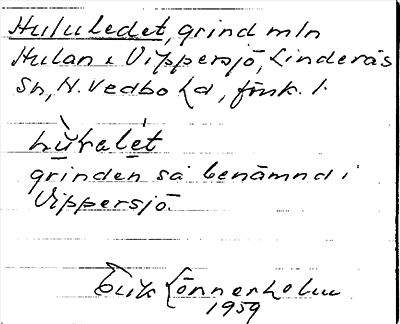 Hululedet, grind mln
Hulan i Vippersjö, Linderås
Sn, N. Vedbo Hd, Jönk. l.
grinden så benämnd i
Vippersjö.
Erik Lönnerholm
1959